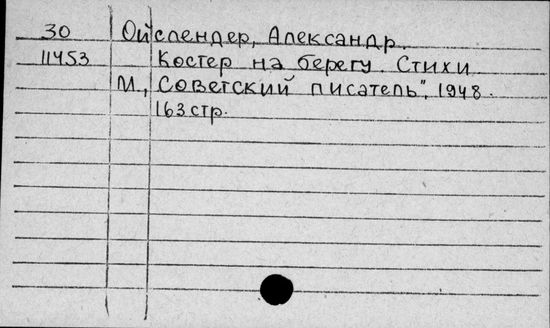 30 Ойслендер, Александр.
11453 Костер на берегу. Стихи
М., Советский писатель", 1948.
163 стр.